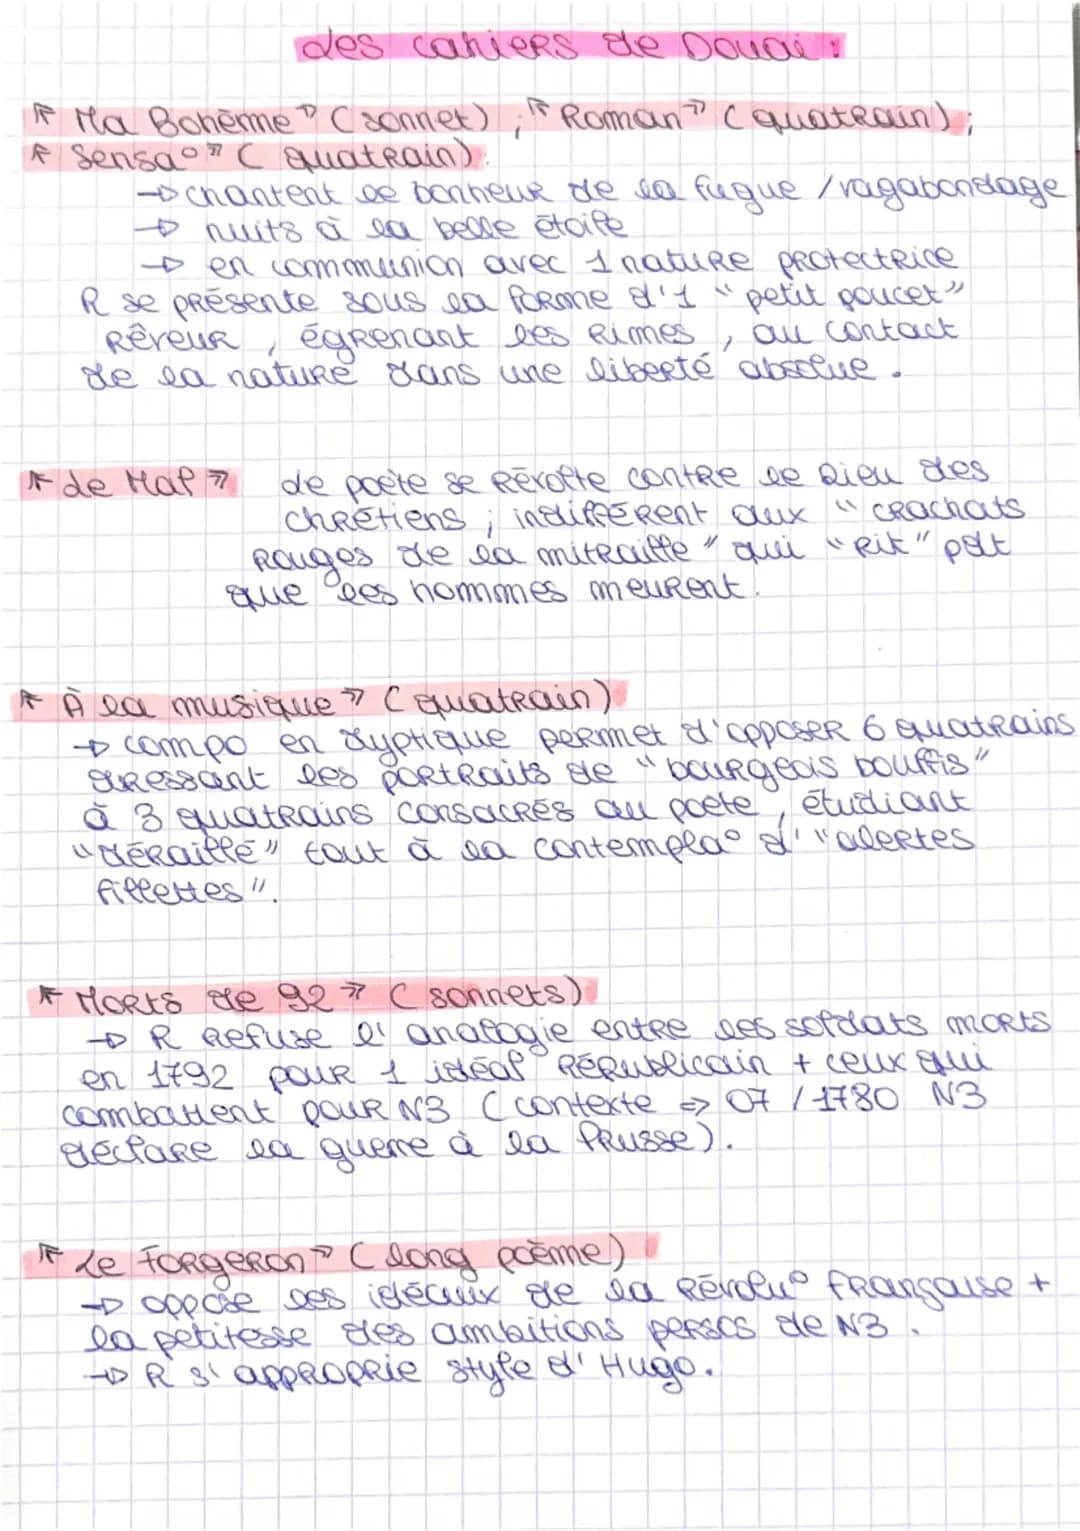 des cahiers de Douai :
« Ma Bohème » (sonnet) ; « Roman » (quatrain) ;
« Sensa° » (quatrain) :
→ chantent le bonheur de la fugue / vagabondage
→ nuits à la belle étoile
→ en communion avec 1 nature protectrice
R se présente sous la forme d'1 "petit poucet"
rêveur, égrenant les rimes, au contact
de la nature dans une liberté absolue.
« de Mal » de poète se révolte contre le Dieu des
chrétiens ; indifférent aux "crachats
rouges de la mitraille" qui "rit" pdt
que les hommes meurent.
« À la musique » (quatrain)
→ compo en dyptique permet d'opposer 6 quatrains
dressant les portraits de "bourgeois bouffis"
à 3 quatrains consacrés au poète, étudiant
"déraillé" tout à la contempla° d' "alertes
fillettes".
« Morts de 92 » (sonnets)
→ R refuse l'analogie entre les soldats morts
en 1792 pour 1 idéal républicain + ceux qui
combattent pour N3 (contexte ⇒ 07 / 1780 N3
déclare la guerre à la Prusse).
« Le Forgeron » (long poème)
→ oppose les idéaux de la révolu° française +
la petitesse des ambitions persos de N3.
→ R s'approprie style d'Hugo.